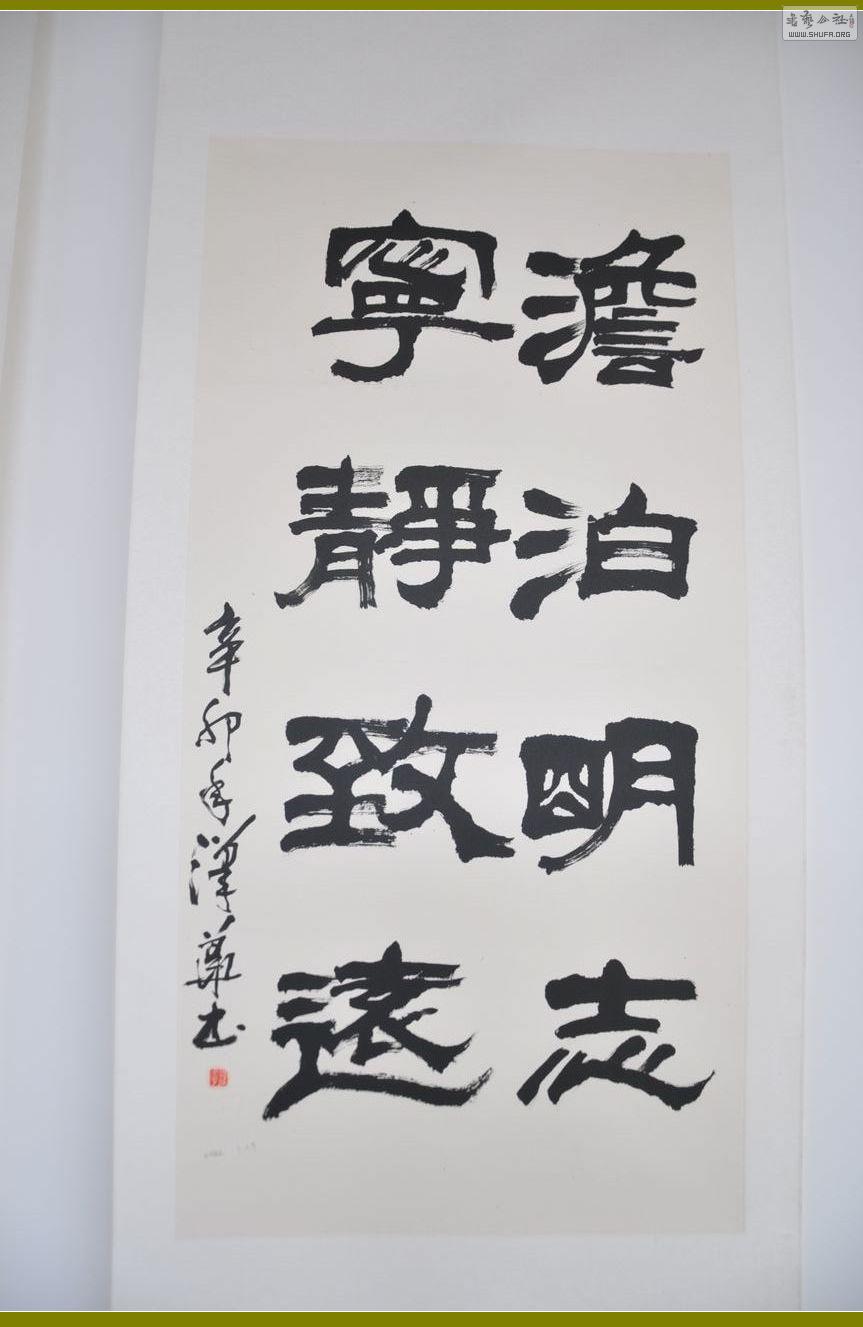 澹泊明志
寧靜致遠
辛卯年澤華书
书艺公社
WWW.SHUFA.ORG